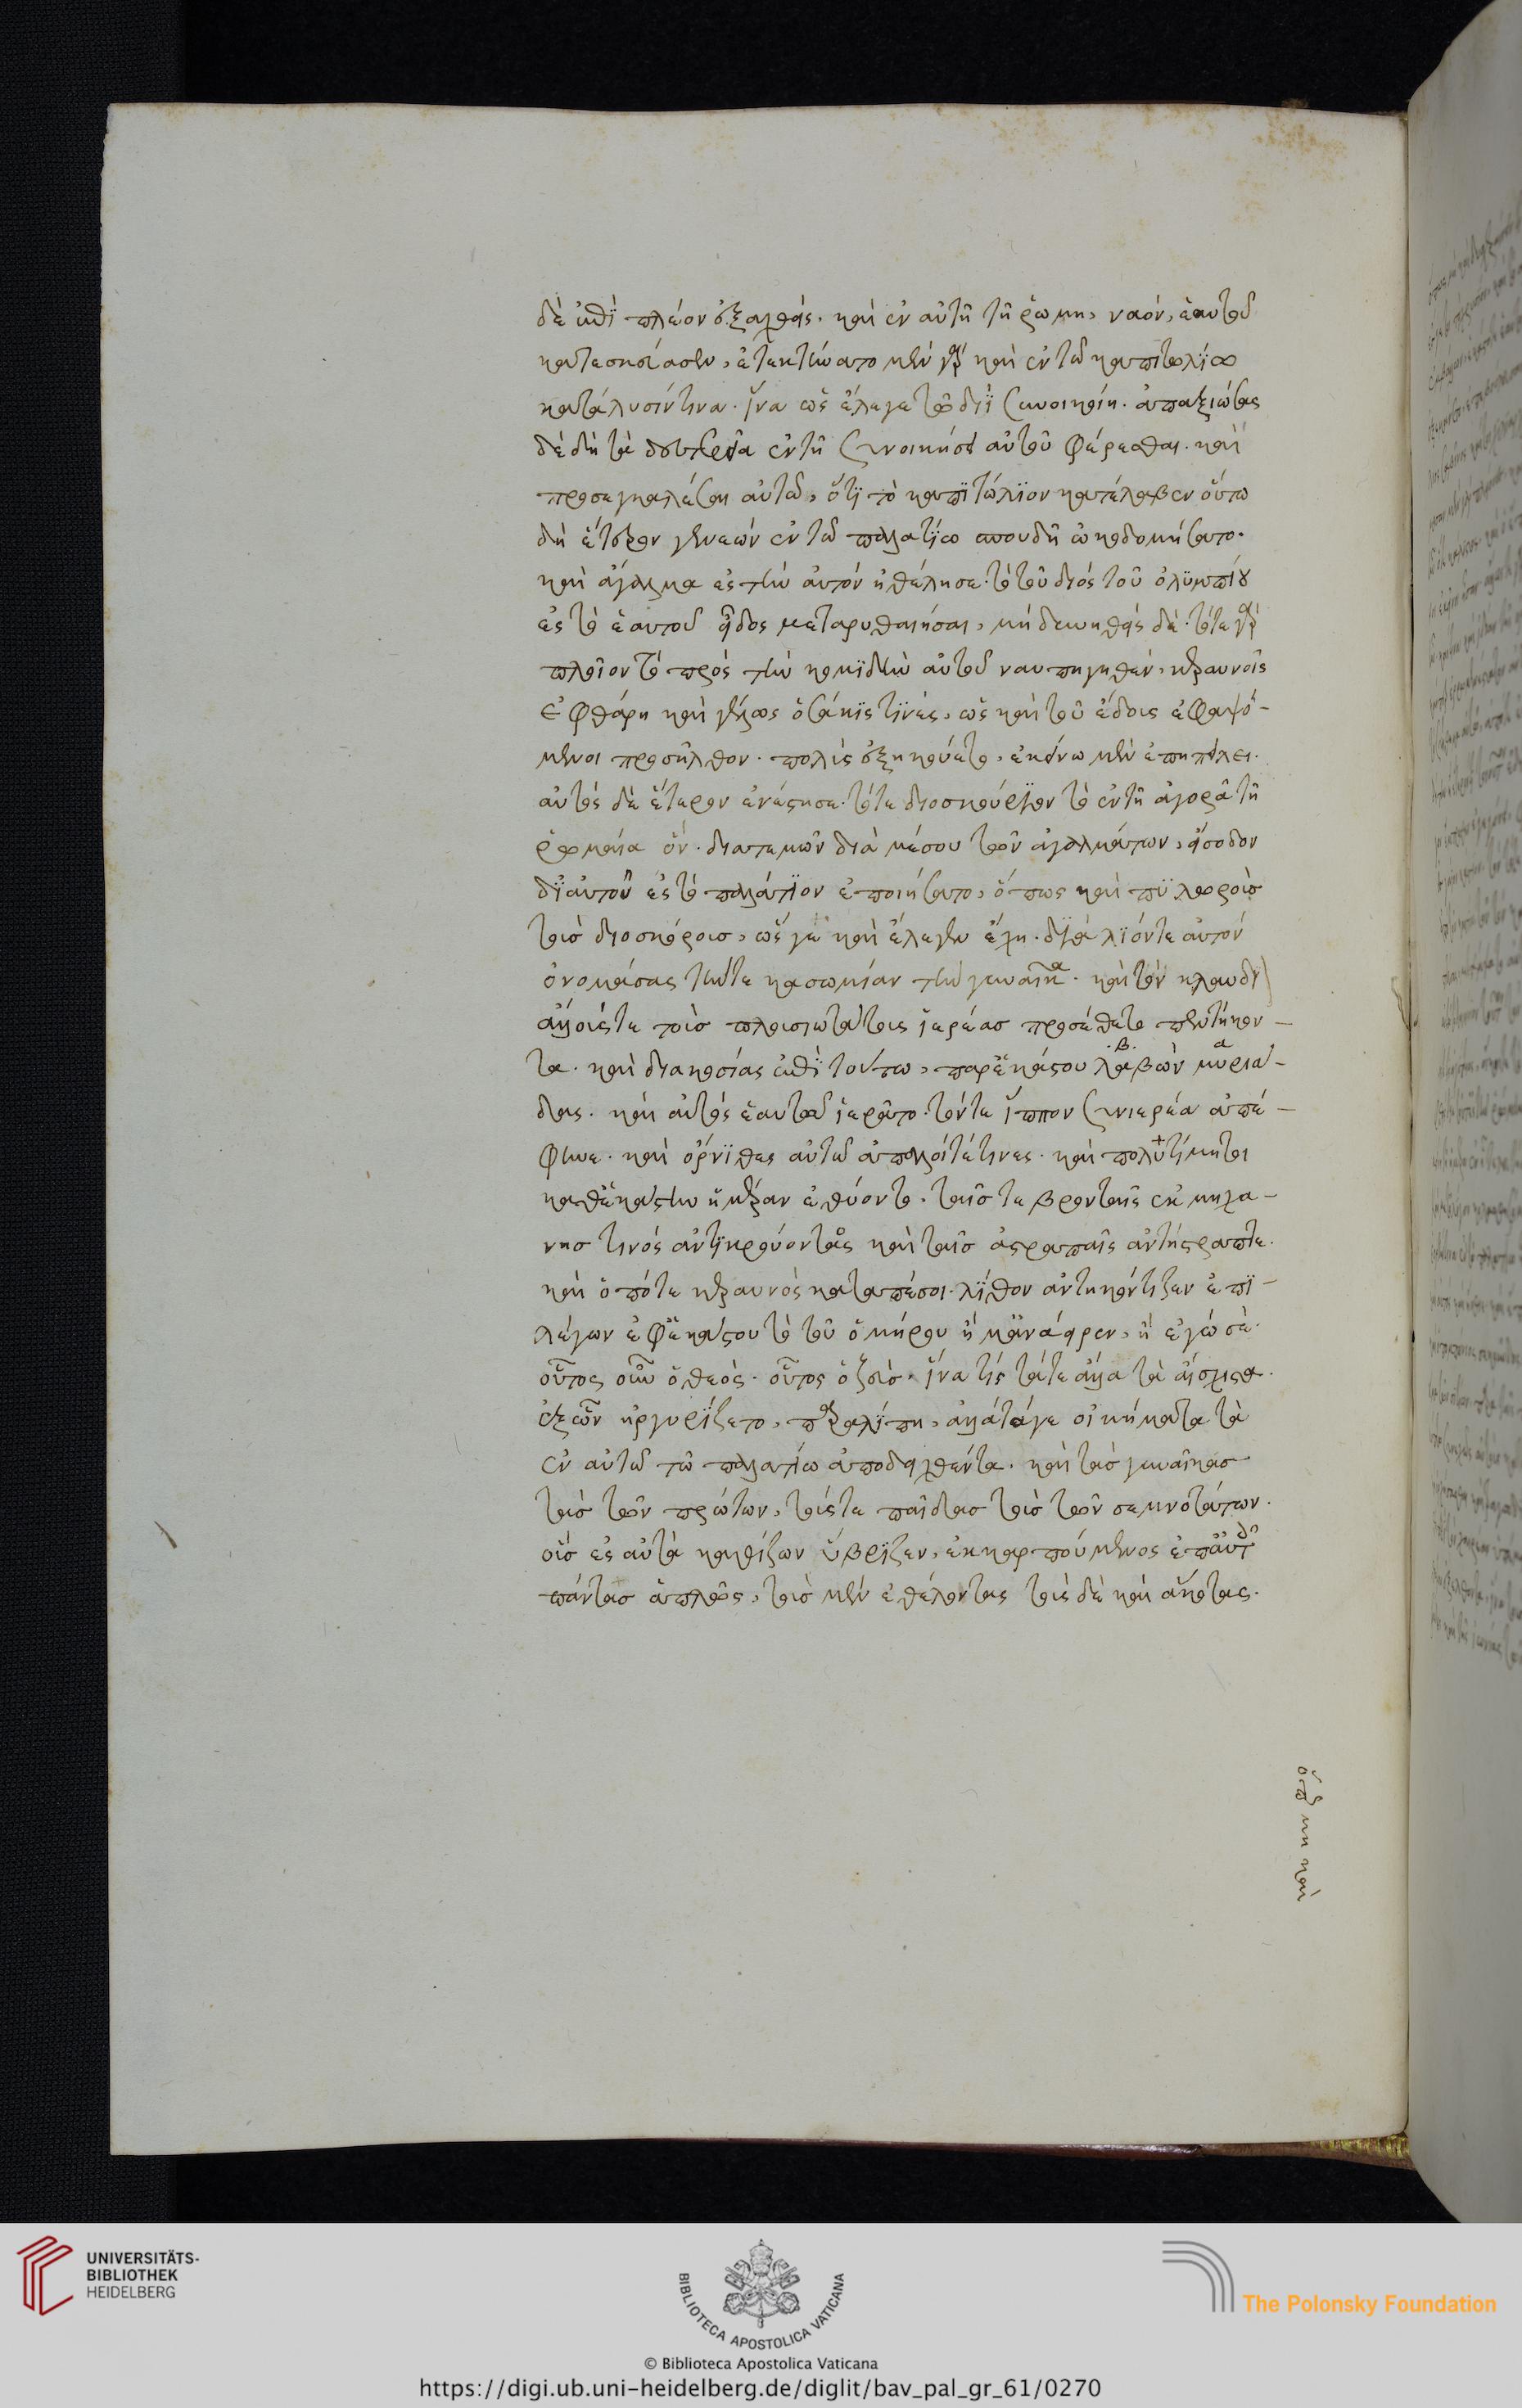 δὲ ἐπὶ πλέον ἐξαχθείς. καὶ ἐν αὐτῆ τῆ ῥώμη, ναὸν, ἑαυτοῦ
κατεσκεύασεν, ἐτεκτήνατο μὲν γὰρ καὶ ἐν τῶ καπιτωλίω
κατάλυσίν τινα. ἵνα ὡς ἔλεγε τῶ διῒ συνοικοίη. ἀπαξιώσας
δὲ δὴ τὰ δευτερεῖα ἐν τῆ συνοικήσει αὐτοῦ φέρεσθαι. καὶ
προσεγκαλέσαι αὐτῶ, ὅτι τὸ καπϊτώλϊον κατέλαβεν οὕτω
δὴ ἕτερον νεὼν ἐν τῶ παλατίω σπουδῆ ὠκοδομήσατο.
καὶ ἄγαλμα ἐς τὴν αὐτὸν ἠθέλησε. τὸ τοῦ διός τοῦ ὀλϋμπίου
ἐς τὸ ἑαυτοῦ εἶδος μεταρυθμῆσαι, μὴ δυνηθεὶς δέ. τότε γὰρ
πλοῖον τὸ πρὸς τὴν κομϊδὴν αὐτοῦ ναυπηγηθέν, κεραυνοῖς
ἐφθάρη καὶ γέλως ὁσάκϊς τϊνὲς, ὡς καὶ τοῦ ἕδους ἐφαψό-
μενοι προσῆλθον. πολὺς ἐξηκούετο, ἐκείνω μὲν ἐπηπείλει.
αὐτὸς δὲ ἕτερον ἐνέστησε. τότε διοσκούρϊον τὸ ἐν τῆ ἀγορᾶ τῆ
ῥωμαία ὄν. διατεμὼν διὰ μέσου τῶν ἀγαλμάτων, εἴσοδον
δι' αὐτοῦ ἐς τὸ παλάτϊον ἐποιήσατο, ὅπως καὶ πϋλωροὺς
τοὺς διοσκόρους, ὥς γε καὶ ἔλεγεν ἔχη. δϊάλϊόν τε αὐτόν
ὀνομάσας τήν τε κασωνίαν τὴν γυναῖκα. καὶ τὸν κλαυδϊ
ἄλλους τε τοὺς πλουσιωτάτους ἱερέας προσέθετο πεντήκον-
τα. καὶ διακοσίας ἐπὶ τούτω, παρ' ἑκάστου λαβὼν μυριά-
δας. καὶ αὐτὸς ἑαυτῶ ἱερᾶτο. τόν τε ἵππον συνιερέα ἀπέ-
φηνε. καὶ ὄρνϊθες αὐτῶ ἁπαλοί τέ τινες. καὶ πολυτίμητοι
καθ' ἑκάστην ἡμέραν ἐθύοντο. ταῖς τε βρονταῖς ἐκ μηχα-
νης τινός ἀντϊκρούοντας καὶ ταῖς ἀστραπαῖς ἀντήστραπτε.
καὶ ὁπότε κεραυνός καταπέσοι. λϊθον ἀντηκόντιζεν ἐπϊ-
λέγων ἐφ' ἑκάστου τὸ τοῦ ὁμήρου ἤ μ' ἀνάειρεν, ἢ ἐγὼ σέ.
οὗτος οὖν ὁ θεὸς. οὗτος ὁ ζεὺς. ἵνα τίς τά τε ἄλλα τὰ αἴσχιστα
ἐξ ὧν ἠργυρίζετο, παραλίπη, ἀλλὰ τάγε οἰκήματα τὰ
ἐν αὐτῶ τῶ παλατίω ἀποδειχθέντα. καὶ τὰς γυναῖκας
τὰς τῶν πρώτων, τούς τε παῖδας τοὺς τῶν σεμνοτάτων.
οὓς ἐς αὐτὰ καθίζων ὕβρϊζεν, ἐκκαρπούμενος ἐπ' αὐτοῖς
πάντας ἁπλῶς, τοὺς μὲν ἐθέλοντας τοὺς δὲ καὶ ἄκοντας.
ὅπως μὴ καὶ
UNIVERSITÄTS-
BIBLIOTHEK
HEIDELBERG
BIBLIOTECA APOSTOLICA VATICANA
The Polonsky Foundation
© Biblioteca Apostolica Vaticana
https://digi.ub.uni-heidelberg.de/diglit/bav_pal_gr_61/0270